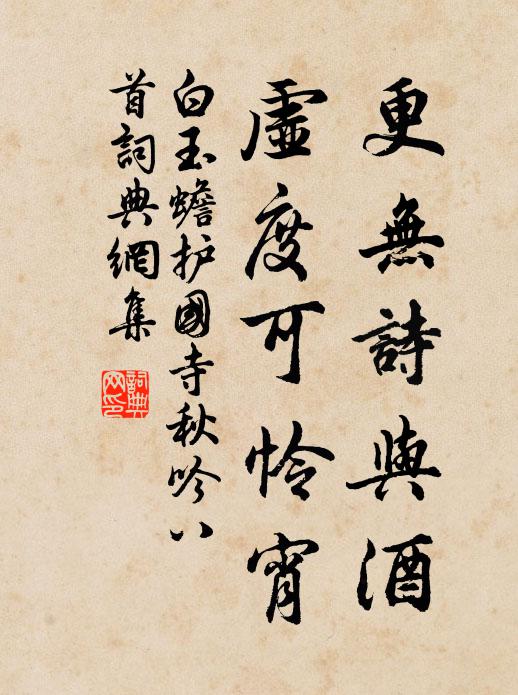 更無詩與酒
虛度可怜宵
白玉蟾护國寺秋吟八
首詞典網集
詞典
网印